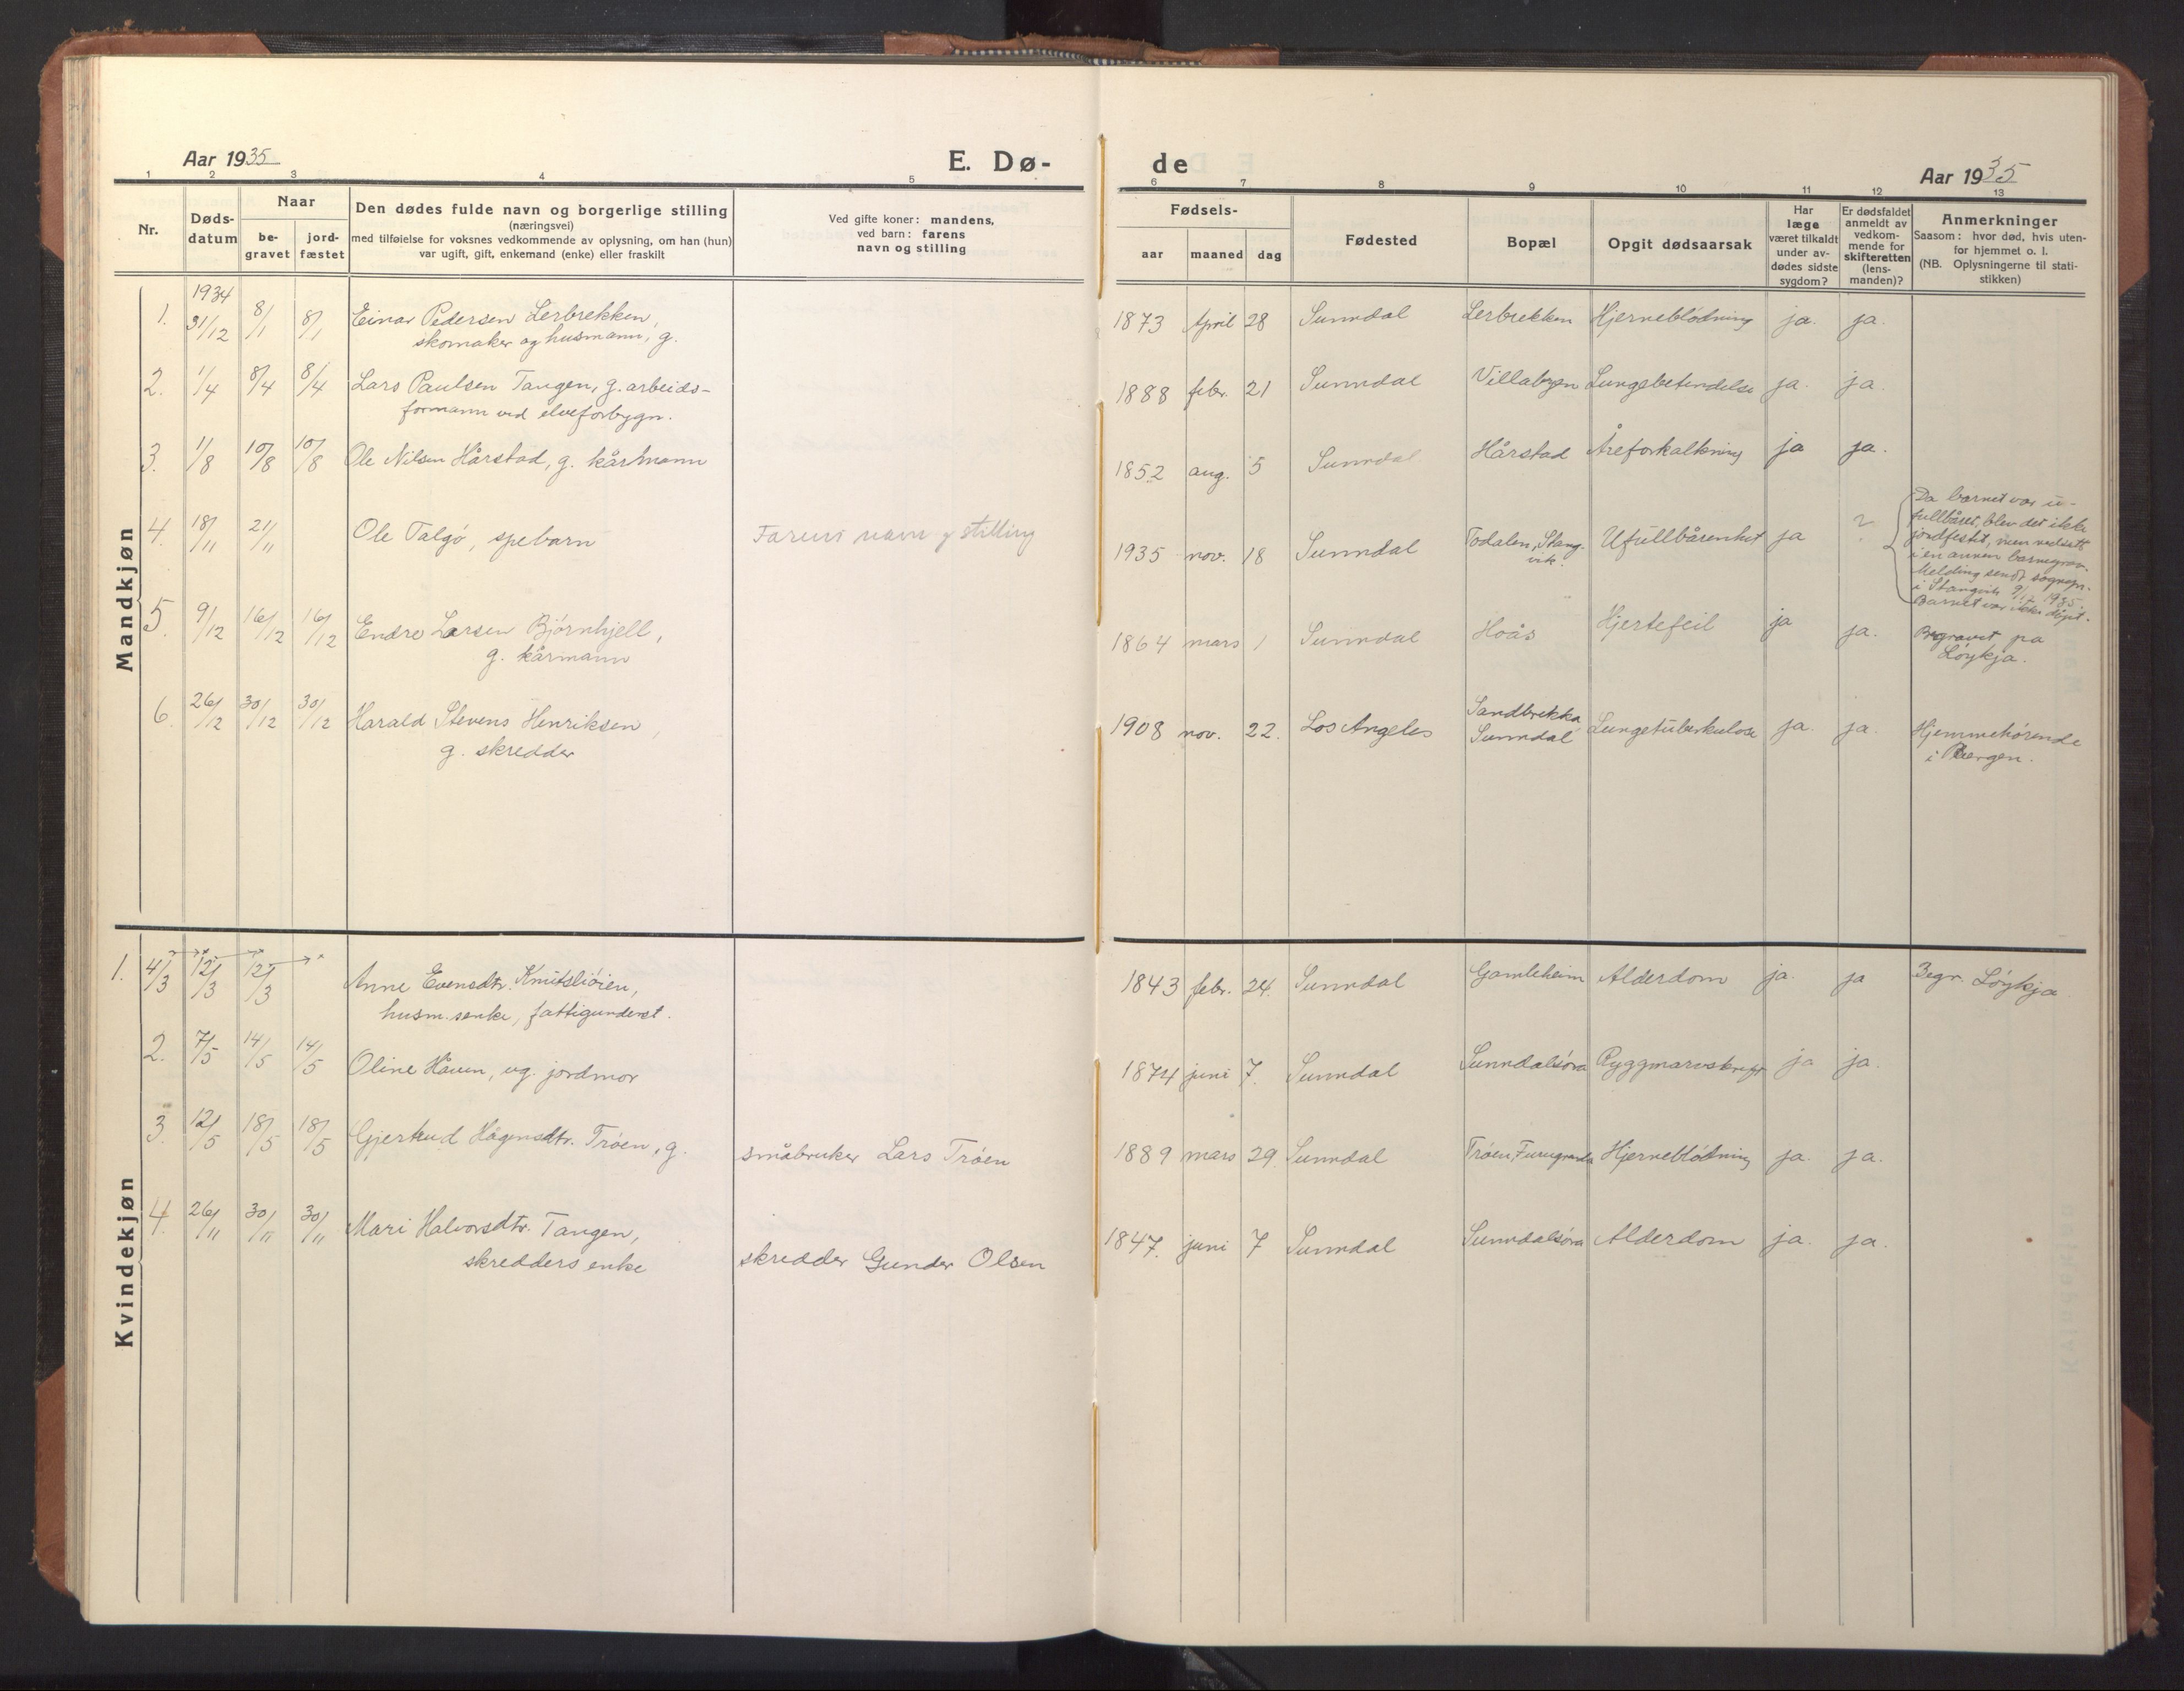 Aar 1935
E. Dø-
de
Aar 1935
1 2 3 4 5 6 7 8 9 10 11 12 13
Nr.
Døds-
datum
Naar
be-
gravet
jord-
fæstet
Den dødes fulde navn og borgerlige stilling
(næringsvei)
med tilføielse for voksnes vedkommende av oplysning, om han (hun)
var ugift, gift, enkemand (enke) eller fraskilt
Ved gifte koner: mandens,
ved barn: farens
navn og stilling
Fødsels-
aar maaned dag
Fødested
Bopæl
Opgit dødsaarsak
Har
læge
været tilkaldt
under av-
dødes sidste
sygdom?
Er dødsfaldet
anmeldt av
vedkom-
mende for
skifteretten
(lens-
manden)?
Anmerkninger
Saasom: hvor død, hvis uten-
for hjemmet o. l.
(NB. Oplysningerne til stati-
stikken)
Mandkjøn
1934
1. 31/12 8/1 8/1 Einar Pedersen Lerbrekken, 1873 April 28 Sunndal Lerbrekken Hjerneblödning ja. ja.
skomaker og husmann, g.
2. 1/4 8/4 8/4 Lars Paulsen Tangen, g. arbeids- 1888 febr. 21 Sunndal Villabyen Lungebetendelse ja. ja.
formann ved elveforbygn.
3. 1/8 10/8 10/8 Ole Nilsen Hårstad, g. kårmann 1852 aug. 5 Sunndal Hårstad Åreforkalkning ja ja.
4. 18/11 21/11 Ole Talgö, spebarn Farens navn og stilling 1935 nov. 18 Sunndal Todalen, Stang-
vik. Ufullbårenhet ja ?
Da barnet var u-
fullbåret, blev det ikke
jordfestet, men nedsatt
i en annen barnegrav.
Melding sendt sognepr.
i Stangvik 9/12 1935.
Barnet var ikke döpt.
5. 9/12 16/12 16/12 Endre Larsen Björnhjell, 1864 mars 1 Sunndal Hoås Hjertefeil ja ja. Begravet på
g. kårmann Löykja.
6. 26/12 30/12 30/12 Harald Stevens Henriksen, 1908 nov. 22. Los Angeles Sandbrekka
Sunndal Lungetuberkulose ja. ja. Hjemmehörende
g. skredder i Bergen.
Kvindekjøn
1. 4/3 12/3 12/3 Anne Evensdtr. Knutsliöien, 1843 febr. 24. Sunndal Gamleheim Alderdom ja. ja Begr. Löykja
husm.senke, fattigunderst.
2. 7/5 14/5 14/5 Oline Haven, ug. jordmor 1874 juni 7. Sunndal Sunndalsöra Ryggmarvskreft ja ja.
3. 12/5 18/5 18/5 Gjertrud Hågensdtr. Tröen, g. småbruker Lars Tröen 1889 mars 29 Sunndal Tröen Furugrenda Hjerneblödning ja. ja.
4. 26/11 30/11 30/11 Mari Halvorsdtr. Tangen, 1847. juni 7 Sunndal Sunndalsöra Alderdom ja. ja.
skredders enke skredder Gunder Olsen